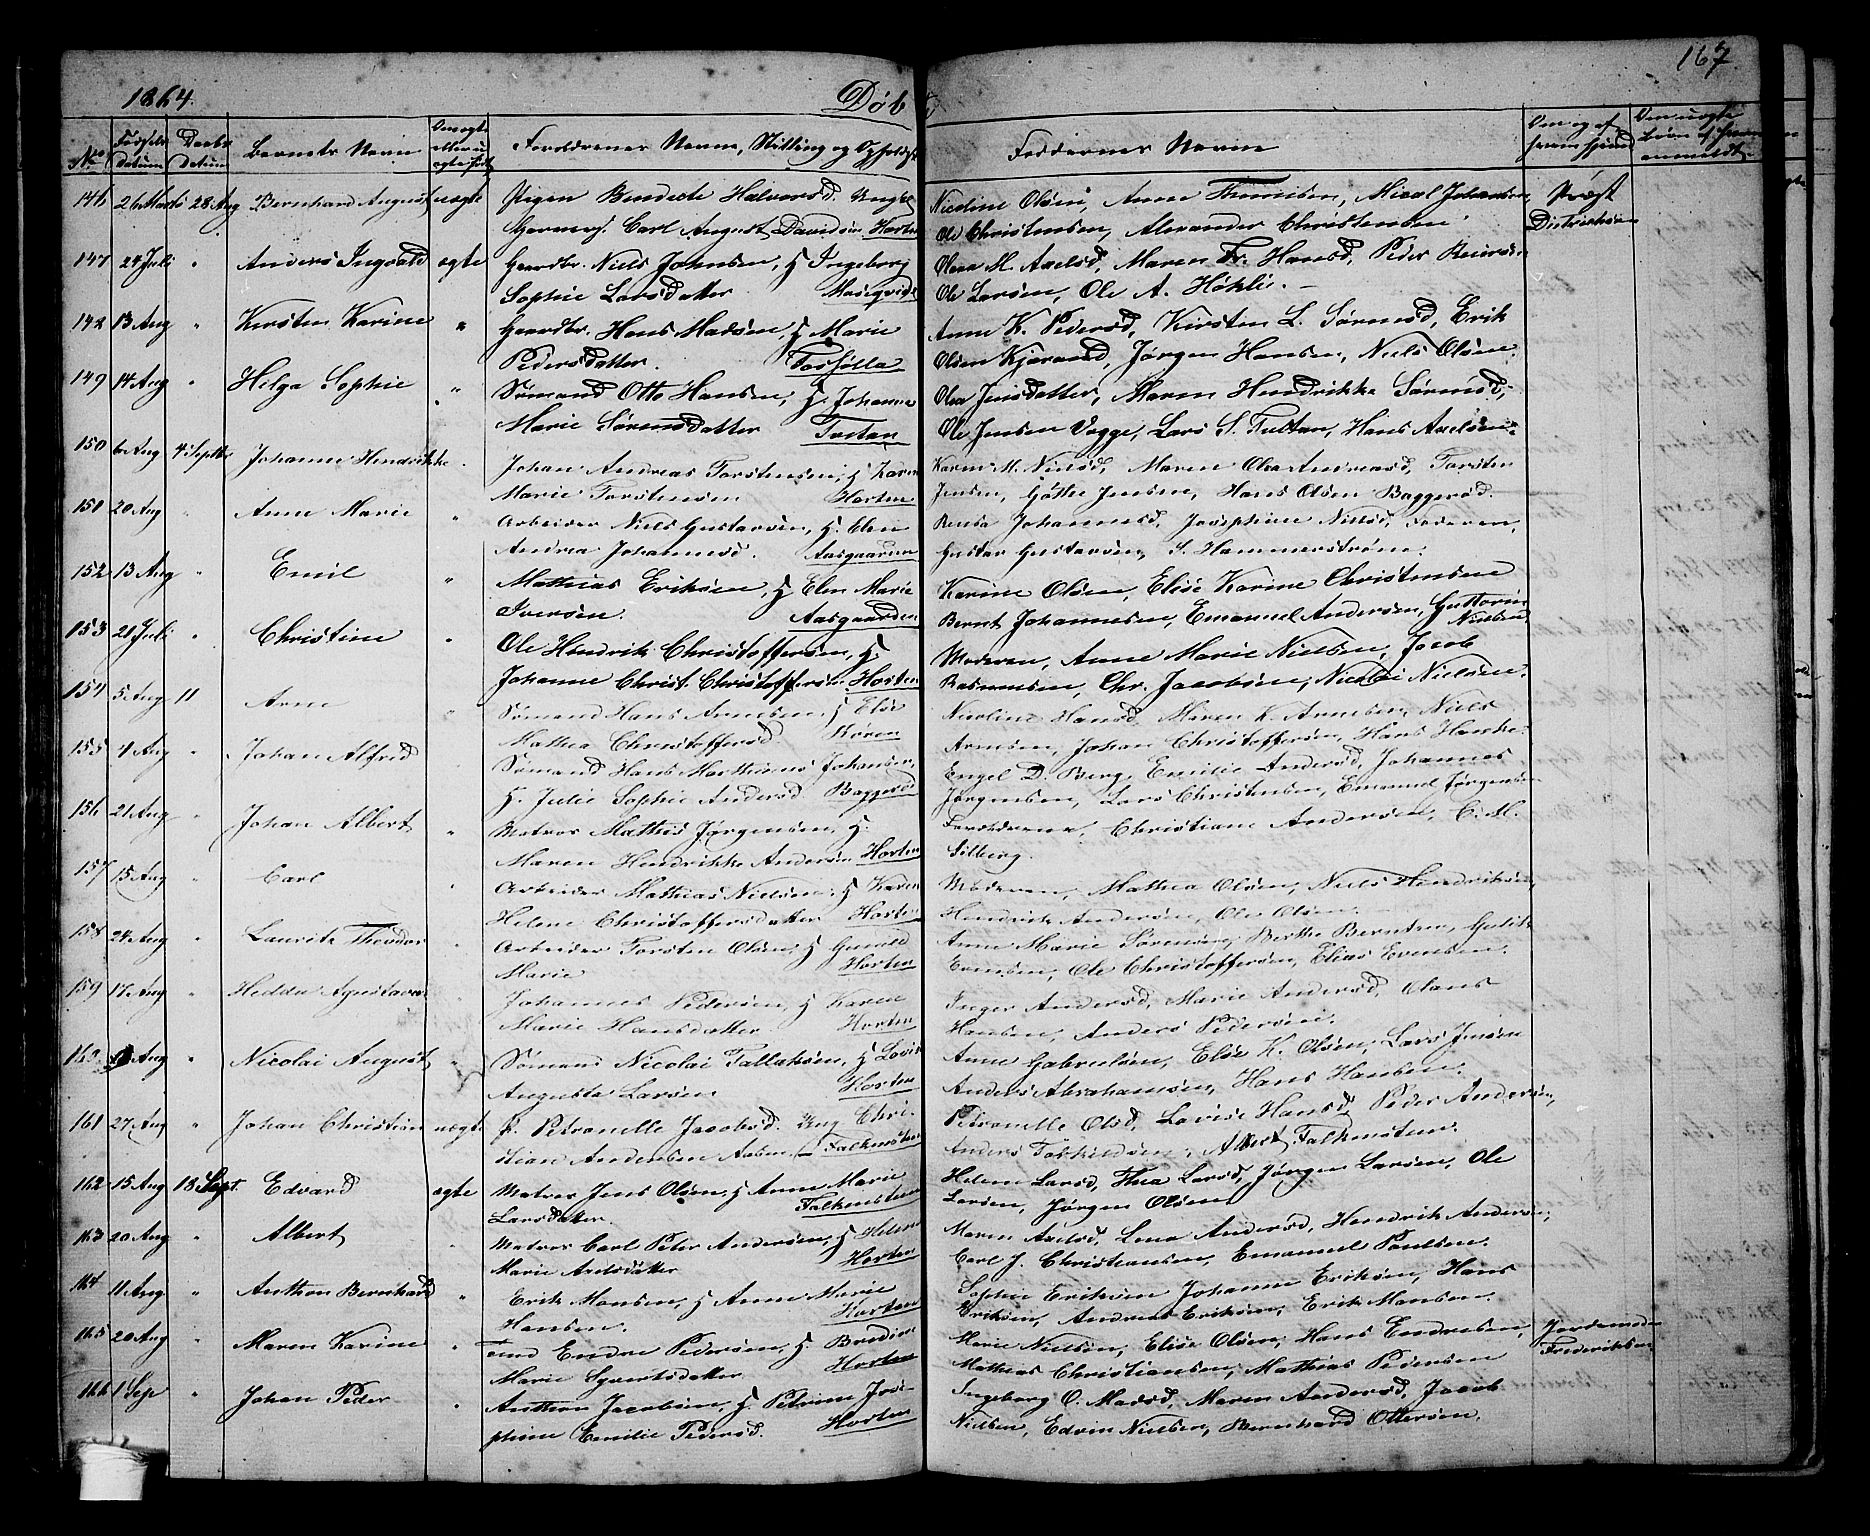 1864.
Døbte
167
No Fødsels datum Daabs datum Barnets Navn Om ægte eller uægte født Forældrenes Navne, Stilling og Opholdssted Faddernes Navne
146 26 Marts 28 Aug Bernhard August uægte Pigen Bendicte Halvorsd. Ungk. Nicoline Olsen, Anne Thomsen, Nicol Johansen, Præst
Carl August Davidsen Horten Ole Christensen, Alexander Christensen Distriktsen
147 24 Juli " Anders Ingvald ægte Gaardbr. Niels Johnsen, H Ingeborg Olea M. Axelsd, Maren Fr. Hansd, Peder
Sophie Larsdatter Ole Larsen, Ole A. Høklie.
148 13 Aug " Kirsten Karine " Gaardbr. Hans Madsen, H Marie Anne K. Pedersd, Kirsten L. Sørensd, Erik
Pedersdatter. Olsen Kjærand, Jørgen Hansen, Niels Olsen.
149 14 Aug " Helga Sophie " Sømand Otto Hansen, H. Johanne Olea Jensdatter, Maren Hendrikke Sørensd,
Marie Sørensdatter Tostan Ole Jensen Vægge, Lars S. Tostan, Hans Axelsen.
150 6 Aug 4 Septbr Johanne Hendrikke Johan Andreas Torstensen, H Karen Karen M. Nielsd, Maren Olea Andreasd, Torsten
Marie Torstensen Horten Jensen, Gøthe Jensen, Hans Olsen Baggerød.
151 20 Aug Anne Marie " Arbeider Niels Gustavsen, H. Elen Johannesd, Josephine Nielsd, Faderen,
Andrea Johannesd. Aasgaarden Gustav Gustavsen, S. Hammerstrøm.
152 13 Aug " Emil " Mathias Eriksen, H Elen Marie Karine Olsen, Elise Karine Christensen
Iversen. Aasgaarden Bernt Johannesen, Emanuel Andersen, Guttorm Nielsen
153 21 Juli " Christine " Ole Hendrik Christoffersen, H. Moderen, Anne Marie Nielsen, Jacob
Johanne Christ. Christoffersen. Horten Rasmussen, Chr. Jacobsen, Nicolai Nielsen.
154 5 Aug 11 Arne " Sømand Hans Arnesen, H Else Nicoline Hansd, Maren K. Arnesen, Niels
Mathea Christoffersd. Arnesen, Johan Christoffersen, Hans Hanke.
155 4 Aug " Johan Alfred Sømand Hans Marthinus Johansen, Engel D. Berg, Emilie Andersd, Johannes
H. Julie Sophie Andersd. Baggerød Jørgensen, Lars Christensen, Emanuel Jørgensen
156 21 Aug " Johan Albert " Matros Mathis Jørgensen, H. Forældrene, Christiane Andersen, C. M.
Maren Hendrikke Andersen Horten Solberg.
157 15 Aug Carl " Arbeider Mathias Nielsen, H Karen Moderen, Mathea Olsen, Niels Hendriksen,
Helene Christoffersdatter Horten Hendrik Andersen, Ole Olsen.
158 24 Aug " Lauritz Theodor " Arbeider Torsten Olsen, H Gunild Anne Marie Sørensen, Berthe Berntsen, Gulik
Marie Horten Evensen, Ole Christoffersen, Elias Evensen.
159 17 Aug " Hedda Agustava Johannes Pedersen, H Karen Inger Andersd, Marie Andersd, Olaus
Marie Hansdatter Horten Hansen, Anders Pedersen.
160 Aug " Nicolai August " Sømand Nicolai Tallaksen, H Lovise Anne Gabrielsen, Else K. Olsen, Lars Jensen
Augusta Larsen Horten Anders Abrahamsen, Hans Hansen.
161 27 Aug " Johan Christian uægte P. Petronelle Jacobsd. Ung. Chri- Petronelle Olsd, Lovise Hansd, Peder Andersen,
stian Andersen Aasen Falkensten Anders Torkildsen, Albert Falkensten.
162 15 Aug 18 Sept. Edvard ægte Matros Jens Olsen, H Anne Marie Helene Larsd, Thea Larsd, Jørgen Larsen, Ole
Larsdatter. Falkensten Larsen, Jørgen Olsen
163 20 Aug " Albert " Matros Carl Peter Andersen, H Helene Maren Axelsd, Lena Andersd, Hendrik Andersen,
Marie Axelsdatter Horten Carl J. Christiansen, Emanuel Paulsen.
164 11 Aug " Anthon Bernhard " Erik Monsen, H Anne Marie Sophie Eriksen, Johanne Eriksen, Hans
Hansen. Horten Eriksen, Andreas Eriksen, Erik Monsen.
165 20 Aug " Maren Karine " Endre Pedersen, H. Marie Nielsen, Elise Olsen, Hans Endresen, Jordemoder
Marie Syvertsdatter. Horten Mathias Christiansen, Mathias Pedersen Frederiksen
166 1 Sep " Johan Peder " Anthon Jacobsen, H. Petrine Jose- Ingeborg O. Madsd, Maren Andersd, Jacob
phine Emilie Pedersd. Horten Nielsen, Edvin Nielsen, Bernhard Ottersen.